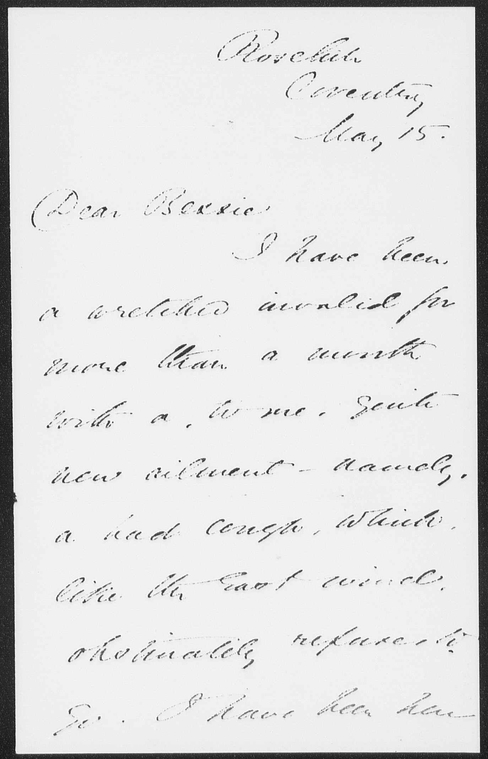 Rosehill
Coventry
May 15.
Dear Bessie
I have been
a wretched invalid for
more than a month
with a, to me, quite
new ailment - namely,
a bad cough, which,
like the East wind,
obstinately refuses to
go. I have been here